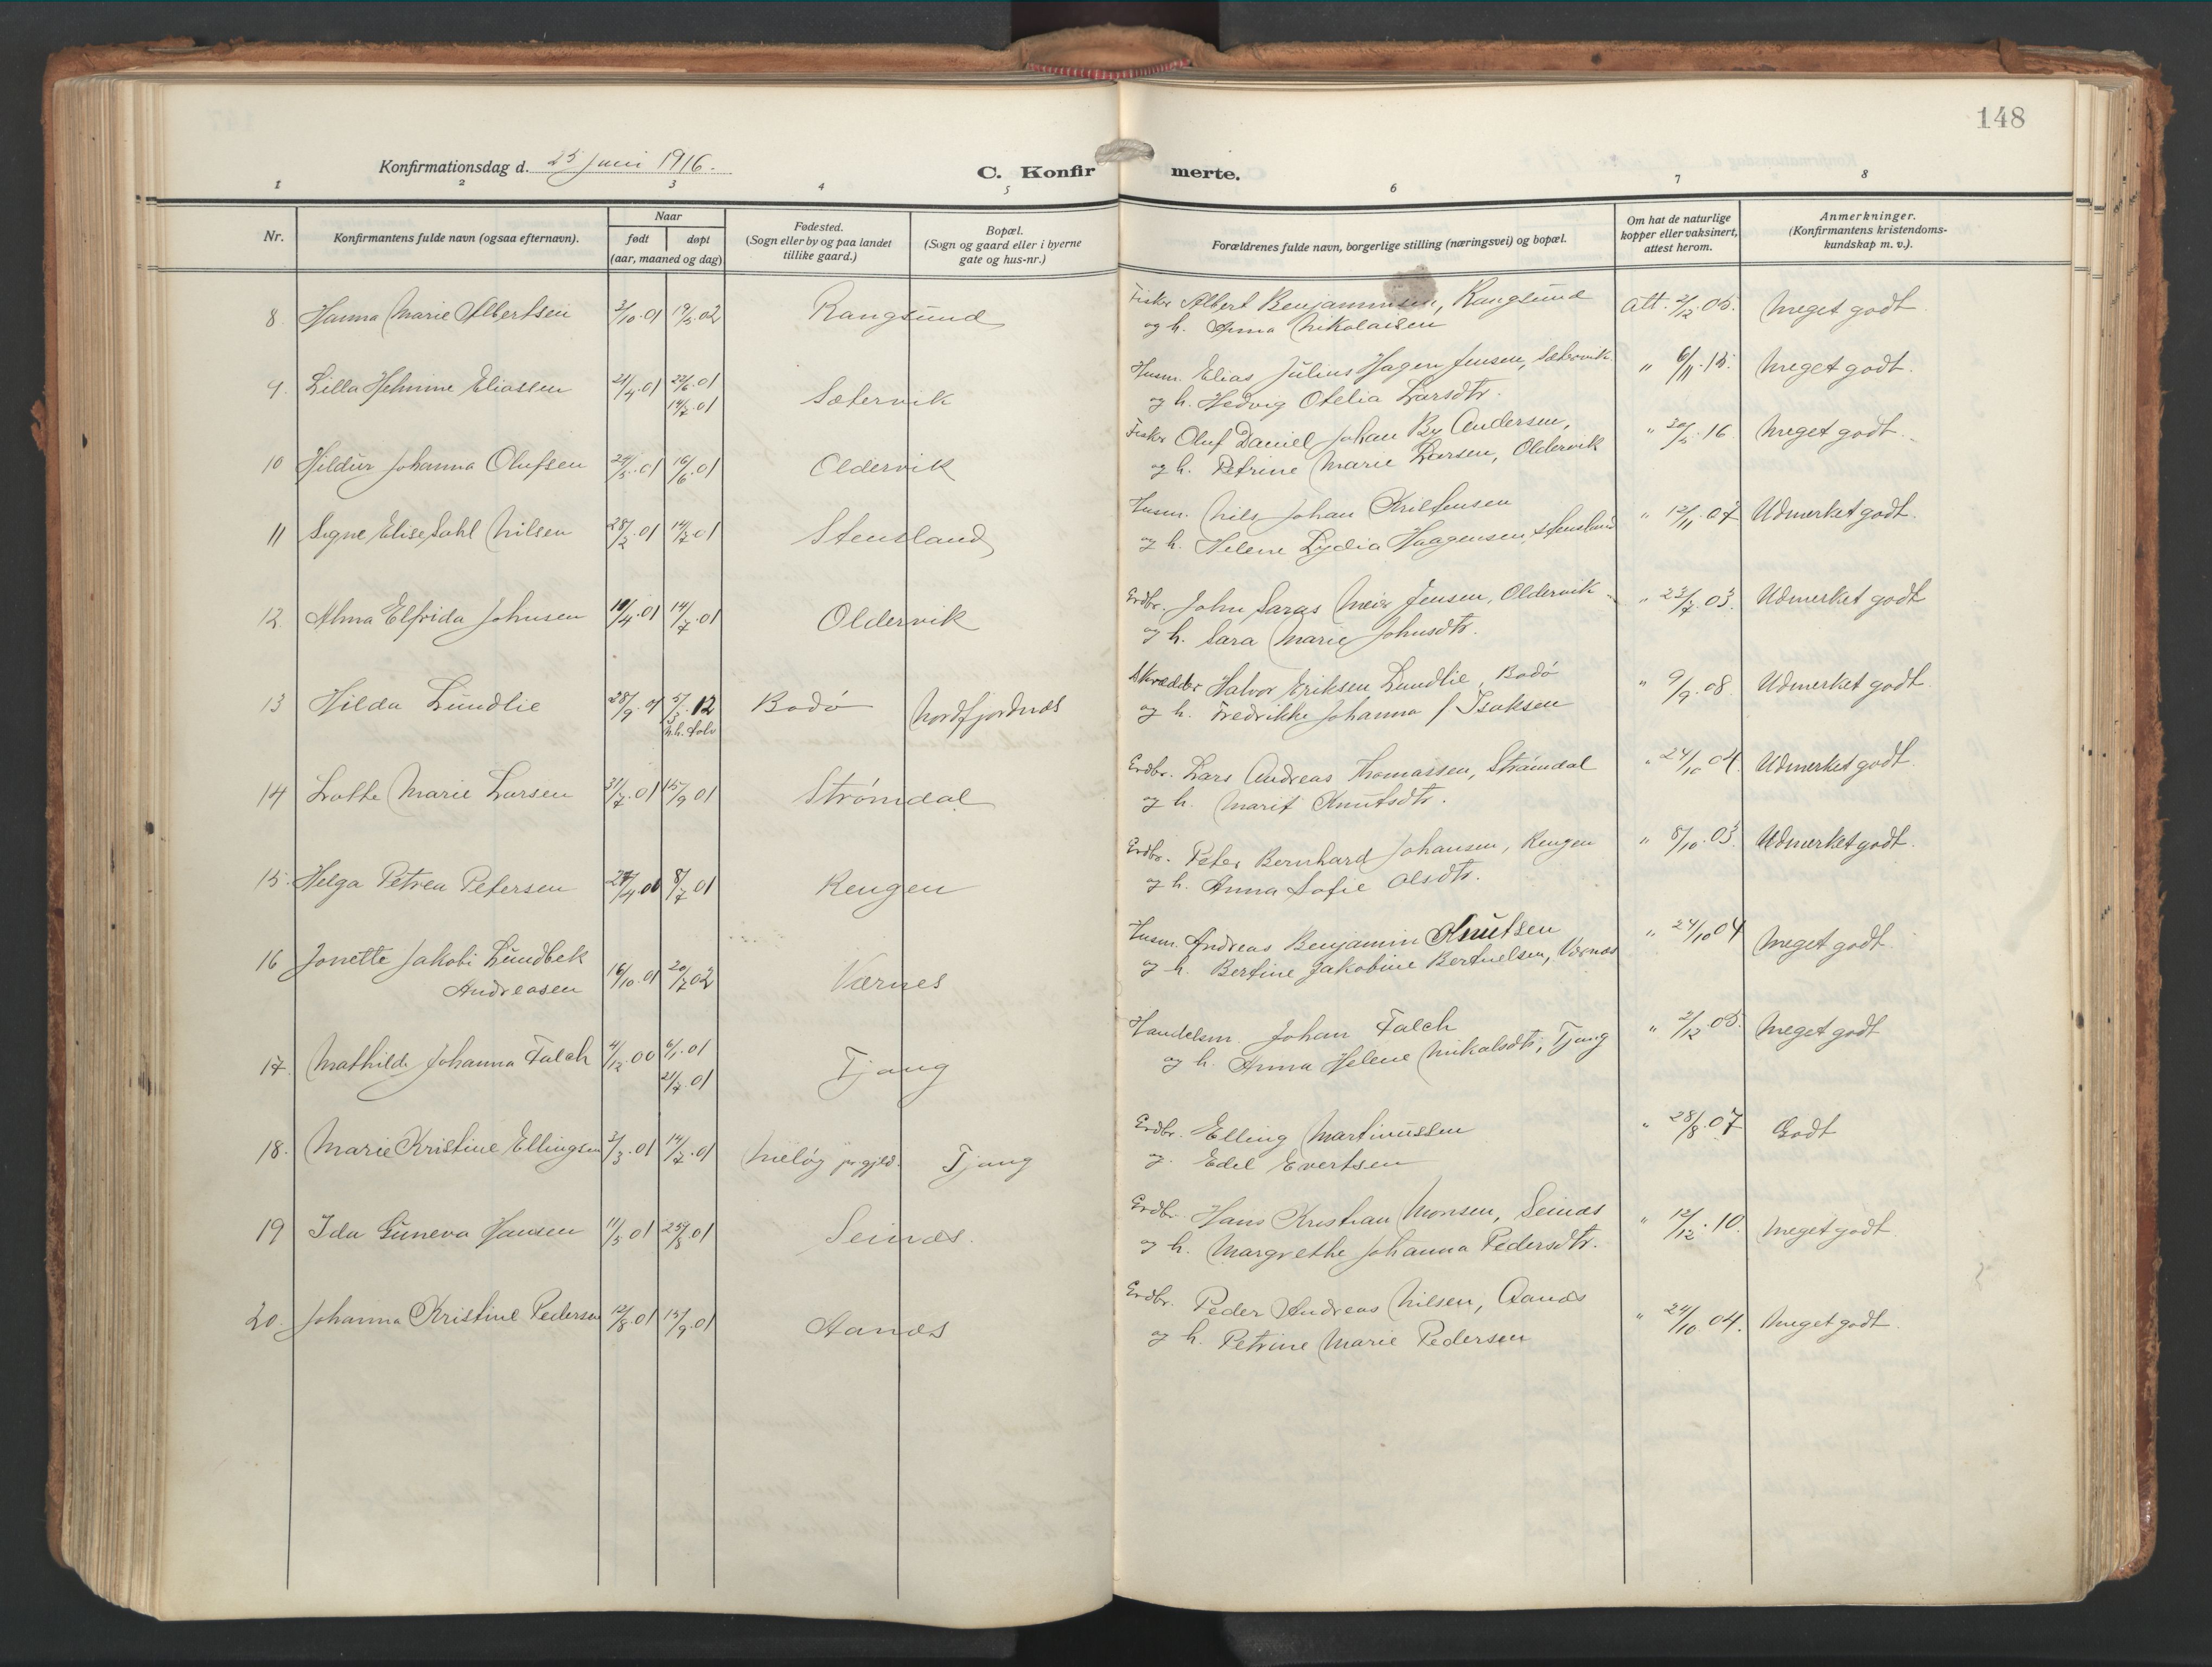 148
Konfirmationsdag d. 25 juni 1916.
C. Konfirmerte.
1 2 3 4 5 6 7 8
Nr.
Konfirmantens fulde navn (ogsaa efternavn).
Naar
født døpt
(aar, maaned og dag)
Fødested.
(Sogn eller by og paa landet
tillike gaard.)
Bopæl.
(Sogn og gaard eller i byerne
gate og hus-nr.)
Forældrenes fulde navn, borgerlige stilling (næringsvei) og bopæl.
Om hat de naturlige
kopper eller vaksinert,
attest herom.
Anmerkninger.
(Konfirmantens kristendoms-
kundskap m. v.).
8 Hanna Marie Albertsen 3/10.01 19/5.02 Rangsund Fisker Albert Benjaminsen, Rangsund att. 2/12.05. Meget godt.
og h. Anna Nikolaisen
9. Lilla Helmine Eliassen 21/4.01 22/6.01 Sætervik Husm. Elias Julius Hagen Jensen, Sætervik. " 6/11.15. Meget godt.
14/7.01 og h. Hedvig Otelia Larsdtr.
10 Hildur Johanna Olufsen 24/5.01 16/6.01 Oldervik Fisker Oluf Daniel Johan By Andersen, " 20/5.16 Meget godt.
og h. Petrine Marie Larsen, Oldervik
11 Signe Elise Dahl Nilsen 28/2.01 14/7.01 Stensland Husm. Nils Johan Kristensen " 12/11.07 Udmerket godt.
og h. Helene Lydia Haagensen, Stensland
12. Alma Elfrida Johnsen 10/4.01 14/7.01 Oldervik Grdbr. John Saras Meier Jensen, Oldervik " 23/7.03. Udmerket godt
og h. Sara Marie Johnsdtr.
13 Hilda Lundlie 28/9.01 5/3.12 Bodö Nordfjordnes Skrædder Halvor Eriksen Lundlie, Bodö " 9/9.08. Udmerket godt
og h. Fredrikke Johanna f Isaksen
14 Lotte Marie Larsen 31/7.01 15/9 01 Strömdal Grdbr. Lars Andreas Thomassen, Strömdal " 24/10 04. Udmerket godt.
og h. Marit Knutsdtr.
15. Helga Petrea Petersen 27/4.01 8/7.01 Rengen Grdbr. Peter Bernhard Johansen, Rengen " 8/10.03. Udmerket godt.
og h. Anna Sofie Olsdtr.
16 Jonette Jakobi Lundbek 16/10.01 20/7 02 Værnes Husm. Andreas Benjamin Knutsen " 24/10 04 Meget godt.
Andreasen og h. Bertine Jakobine Bertnelsen, Værnes
17. Mathilde Johanna Falch 4/12.00 6/1.01 Tjong Handelsm. Johan Falch " 2/12 05. Meget godt
21/7.01 og h. Anna Helene Mikalsdtr, Tjong
18. Marie Kristine Ellingsen 3/3.01 14/7.01 Melöy pr.gjeld. Tjong Grdbr. Elling Martinussen " 28/8.07 Godt
og. Edel Evertsen
19 Ida Guneva Hansen 11/5 01 25/8.01 Seines. Grdbr. Hans Kristian Monsen, Seines " 12/12.10. Meget godt.
og h. Margrethe Johanna Pedersdtr.
20. Johanna Kristine Pedersen 12/8.01 15/9.01 Aanes Grdbr. Peder Andreas Nilsen, Aanes " 24/10 04. Meget godt.
og h. Petrine Marie Pedersen